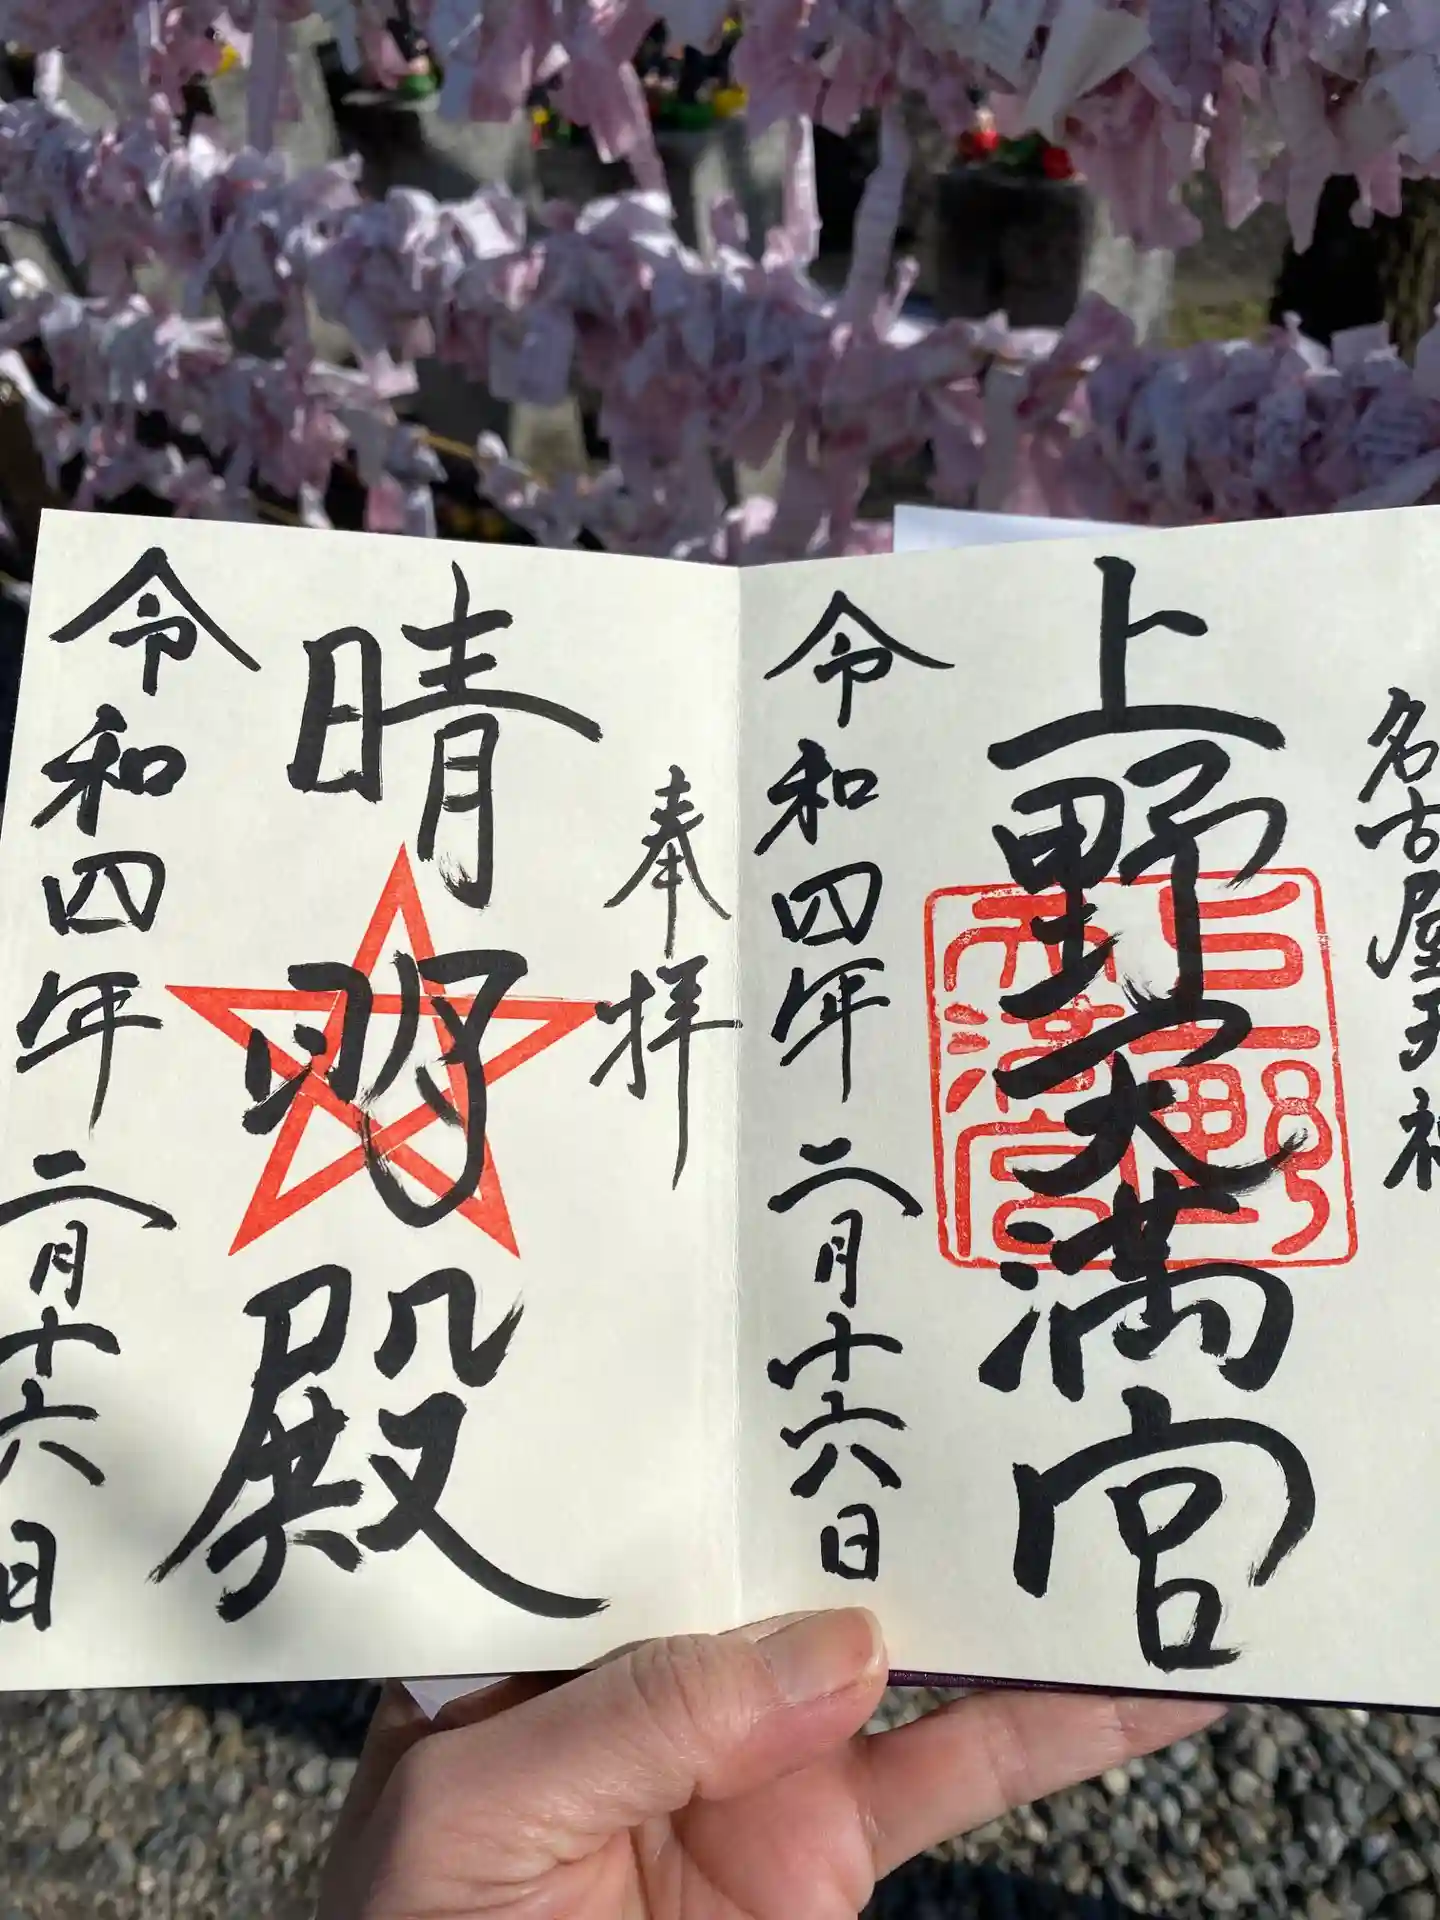 名古屋天神
上野天満宮
令和四年二月十六日
奉拝
晴明殿
令和四年二月十六日
上野
天満宮